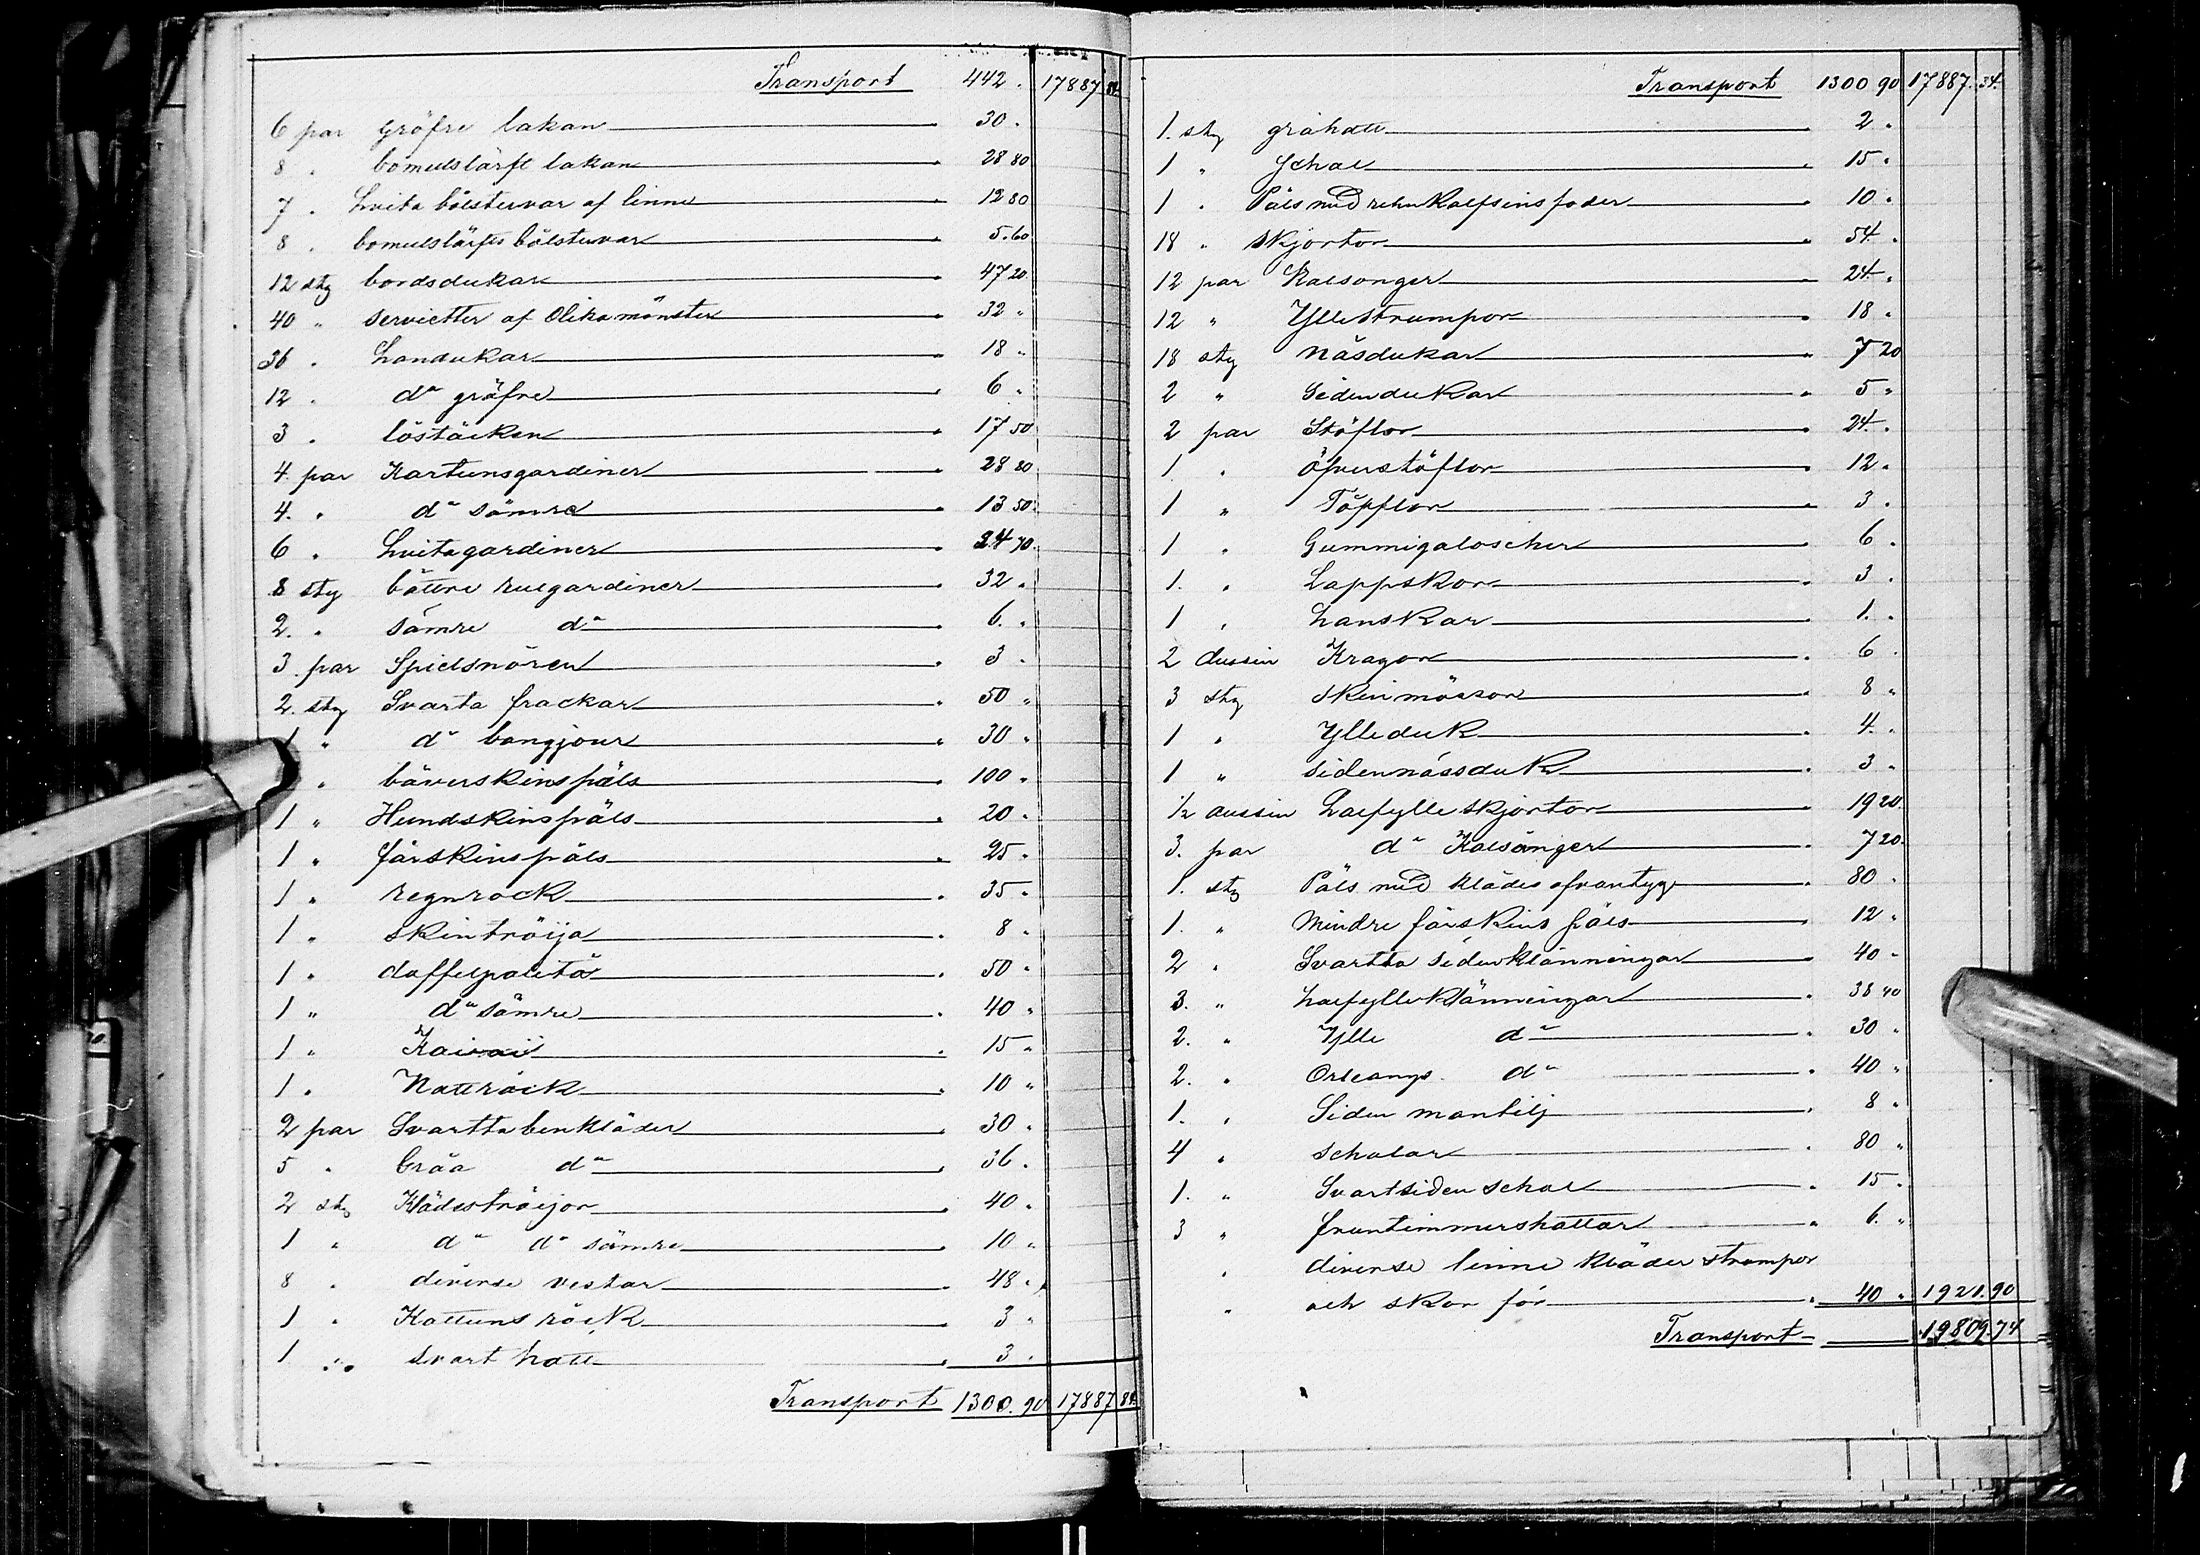 Transport 442 . 17887 84.
6 par gröfre lakan 30 .
8 " bomulslärft lakan 28 80
7 " hvita bölstervar af linne 12 80
8 " bomulslärfts bölstervar 5.60
12 sty bordsdukar 47 20
40 " servietter af Olika mönster 32 "
36 " handukar 18 "
12 " do gröfre 6 "
3 " löstäcken 17 50
4 par Kartunsgardiner 28 80
4. " do sämre 13 50
6 " hvita gardiner 24 70
8 sty bättre rulgardiner 32 "
2. " sämre do 6. "
3 par Spielsnören 3 "
2. sty Svarta frackar 50 "
1 " do bongjour 30 "
" bäverskinspäls 100 "
1 " Hundskinspäls 20 "
1 " fårskinspäls 25 "
1 " regnrock 35 "
1 " skintröija 8 "
1 " doffelpaletå 50 "
1 " do sämre 40 "
1 " 15 "
1 " Nattråck 10 "
2 par Svartta benkläder 30 "
5 " Gråa do 36 .
2 sty Klädeströijor 40 "
1 " do do sämre 10 "
8 " diverse vestar 48 "
1 " Kattuns råck 3 "
1 " svart hatt 3 .
Transport 1300. 90 17887 84
Transport 1300 90 17887. 34.
1. sty gråhatt 2 "
1 " Schal 15 "
1 " Päls med rehnkalfsins foder 10 "
18 " skjortor 54 "
12 par Kalsonger 24 "
12 " Yllestrumpor 18 "
18 sty näsdukar 7 20
2 " Sidendukar 5 "
2 par Stöflor 24 "
1. " öfverstöflor 12 "
1 " Töfflor 3 .
1 " Gummigaloscher 6 .
1. " Lappskor 3 .
1 " hanskar 1. "
2 dussin Kragor 6 .
3 sty skinmössor 8 "
1 " Ylleduk 4. "
1 " sidennässduk 3 "
1/2 dussin halfylleskjortor 19 20
3. par do Kalsånger 7 20.
1. sty Päls med klädes ofvantyg 80 .
1. " Mindre fårskins päls 12 "
2 " Svartta sidenklänningar 40 "
3. " halfylleklänningar 38 40
2. " Ylle do 30 "
2. " Orleangs do 40 "
1. " Siden mantilj 8 "
4 " schalar 80 "
1. " Svartsiden schal 15 "
3 " fruntimmershattar 6. "
" diverse linne kläder strumpor
" och skor för 40 " 1921.90
Transport 19809.74